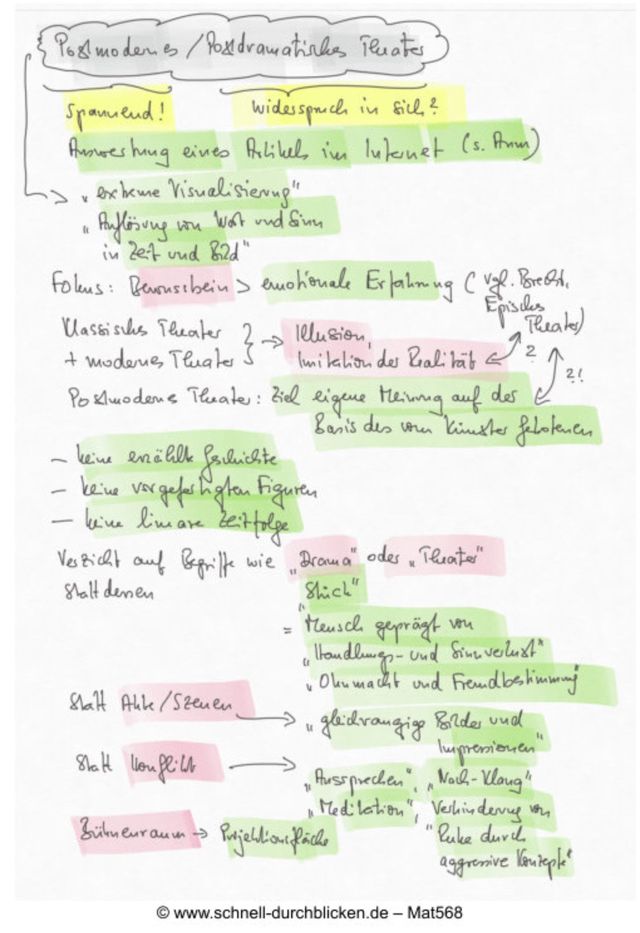 Postmodernes / Postdramatisches Theater
spannend! Widerspruch in sich?
Auswertung eines Artikels im Internet (s. Anm)
"extreme Visualisierung"
"Auflösung von Wort und Sinn
in Zeit und Bild"
Fokus: Bewusstsein > emotionale Erfahrung (vgl. Brecht,
Episches
Theater)
Klassisches Theater
+ modernes Theater } → Illusion,
Imitation der Realität ?
?!
Postmodernes Theater: Ziel eigene Meinung auf der
Basis des vom Künstler Gebotenen
– keine erzählte Geschichte
– keine vorgefertigten Figuren
– keine lineare Zeitfolge
Verzicht auf Begriffe wie "Drama" oder "Theater"
Statt dessen "Stück"
= Mensch geprägt von
"Handlungs- und Sinnverlust"
"Ohnmacht und Fremdbestimmung"
Statt Akte/Szenen → "gleichrangige Bilder und
Impressionen"
Statt Konflikt → "Aussprechen", "Nach-Klang"
"Meditation", Verhinderung von
"Ruhe durch
aggressive Konzepte"
Bühnenraum → Projektionsfläche
© www.schnell-durchblicken.de – Mat568